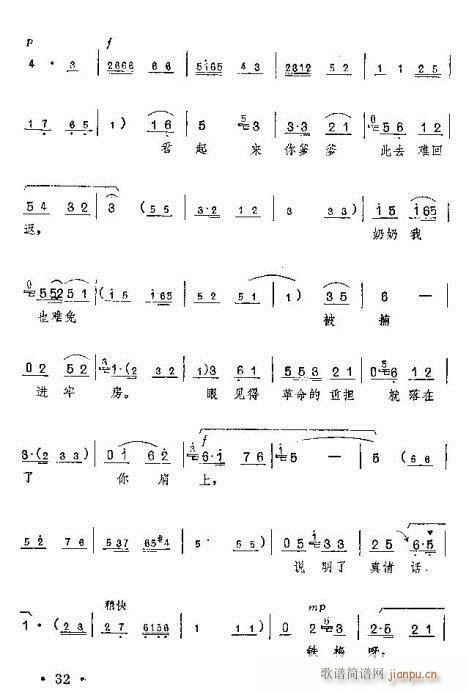 p f
4 · 3 | 2666 6 6 | 5165 4 3 | 2312 5 2 | 1 1 2 5
1 7 6 5 | 1 ) 1 6 | 5 5 3 | 3·3 2 1 | 0 5 6 1 2
看 起 来 你爹爹 此去 难回
5 4 3 2 | 3 ( 5 5 | 3·2 1 2 | 3 3 3 ) | i 5 i65
返， 奶奶 我
0 5 52 5 1 | ( 3·5 i65 | 5 2 5 1 | 1 ) 3 5 | 6 —
也难免 被 捕
0 2 5 2 | 3 1·( 2 3 3 2 | 1 ) 3 6 1 | 5 5 3 2 1 | 0 5 6 1 2
进 牢 房。 眼 见得 革命的 重担 就 落在
3·( 2 3 3 | 0 i 6 2 | 3 6·i 7 6 | i 5 — | 5 ( 5 6
f
了 你 肩 上，
5 2 7 6 | 5 37 65#4 | 5 · 5 ) | 0 5 i 3 3 | 2 5 6·5
说 明了 真情 话.
稍快 mp
1 · ( 2 3 | 2 7 6136 | 1 1 ) | 0 2 5 3 | 2·5 2 1
铁 梅 呀，
· 32 ·
歌谱简谱网
jianpu.cn